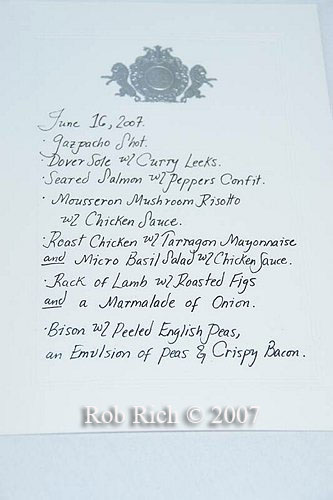 June 16, 2007.
· Gazpacho Shot.
· Dover Sole w/ Curry Leeks.
· Seared Salmon w/ Peppers Confit.
· Mousseron Mushroom Risotto
w/ Chicken Sauce.
· Roast Chicken w/ Tarragon Mayonnaise
and Micro Basil Salad w/ Chicken Sauce.
· Rack of Lamb w/ Roasted Figs
and a Marmalade of Onion.
· Bison w/ Peeled English Peas,
an Emulsion of Peas & Crispy Bacon.
Rob Rich © 2007